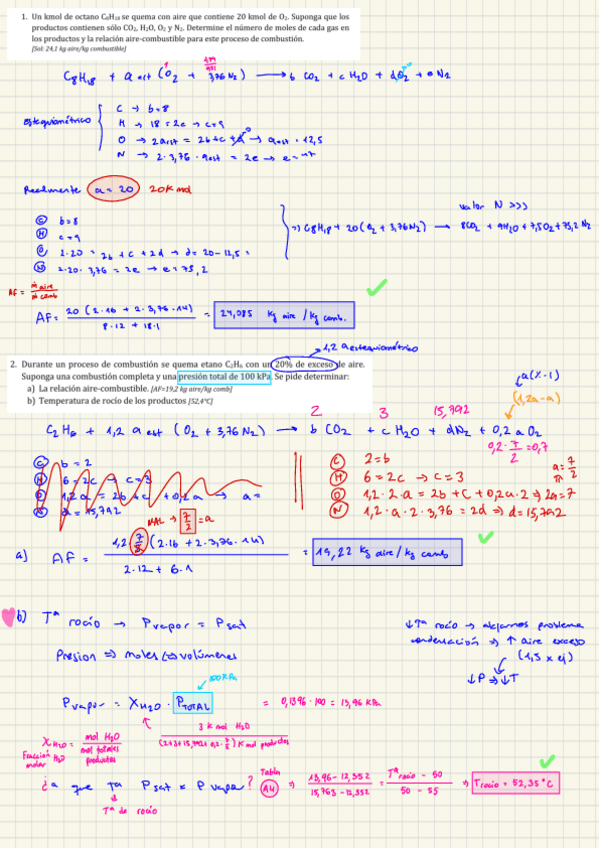 1. Un kmol de octano C₈H₁₈ se quema con aire que contiene 20 kmol de O₂. Suponga que los
productos contienen sólo CO₂, H₂O, O₂ y N₂. Determine el número de moles de cada gas en
los productos y la relación aire-combustible para este proceso de combustión.
[Sol: 24,1 kg aire/kg combustible]
C₈H₁₈ + a est (O₂ + 3,76 N₂) → b CO₂ + c H₂O + dO₂ + e N₂
Estequiométrico
C → b=8
H → 18 = 2c → c=9
O → 2aest = 2b+c+d → aest = 12,5
N → 2·3,76·aest = 2e → e=47
Realmente a = 20 20 kmol
valor N >>>
C b=8
H c=9
O 2·20 = 2b + c + 2d → d= 20-12,5 =
N 2·20·3,76 = 2e → e=75,2
=> C₈H₁₈ + 20(O₂ + 3,76N₂) → 8CO₂ + 9H₂O + 7,5O₂ + 75,2 N₂
AF = m aire / m comb
AF = 20 (2·16 + 2·3,76·14) / 8·12 + 18·1 = 24,085 kg aire / kg comb.
1,2 a estequiométrico
2. Durante un proceso de combustión se quema etano C₂H₆ con un 20% de exceso de aire.
Suponga una combustión completa y una presión total de 100 kPa. Se pide determinar:
a) La relación aire-combustible. [AF=19,2 kg aire/kg comb]
b) Temperatura de rocío de los productos [52,4°C]
a(X-1)
(1,2a-a)
2 3 15,792
C₂H₆ + 1,2 a est (O₂ + 3,76 N₂) → b CO₂ + c H₂O + dN₂ + 0,2 a O₂
0,2·7/2 = 0,7
C b = 2
H 6=2c → c=3
O 1,2a = 2b + c + 0,2a → a=
N d = 15,792
MAL → 7/2 = a
C 2=b
H 6 = 2c → c = 3
O 1,2·2·a = 2b + c + 0,2a·2 => 2a=7
N 1,2·a·2·3,76 = 2d => d=15,792
a = 7/2
a) AF = 1,2·7/2 (2·16 + 2·3,76·14) / 2·12 + 6·1 = 19,22 kg aire / kg comb
b) Tª rocío → Pvapor = Psat
Presion => moles <=> volúmenes
↓Tª rocío → alejarnos problema
condensación => ↑ aire exceso
(1,5 x ej)
↓P => ↓T
100 kPa
Pvapor = X H₂O · P TOTAL = 0,1396·100 = 13,96 kPa
X H₂O = mol H₂O / mol totales productos
Fracción molar H₂O
3 kmol H₂O / (2+3+15,792+0,2·7/2) kmol productos
¿a que Tª Psat = Pvapor?
Tª de rocío
Tabla A4 => 13,96 - 12,352 / 15,763 - 12,352 = Tª rocio - 50 / 50 - 55 => T rocio = 52,35 °C